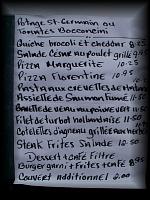 Potage St-Germain ou
Tomates Bocconcini
Quiche brocoli et cheddar 8.25
Salade Cesar au poulet grillé 9.95
Pizza Marguerite 10.25
Pizza Florentine 10.95
Pasta aux crevettes de Matane
Assiette de Saumon Fumé 11-50
Bavette de veau au poivre vert 11-50
Filet de turbot hollandaise 11-50
Côtelettes d'agneau grillée aux herbes
Steak Frites Salade 12-50
Dessert + café Filtre
Burger garni + Frites + café 8.95
Couvert additionnel 2.00